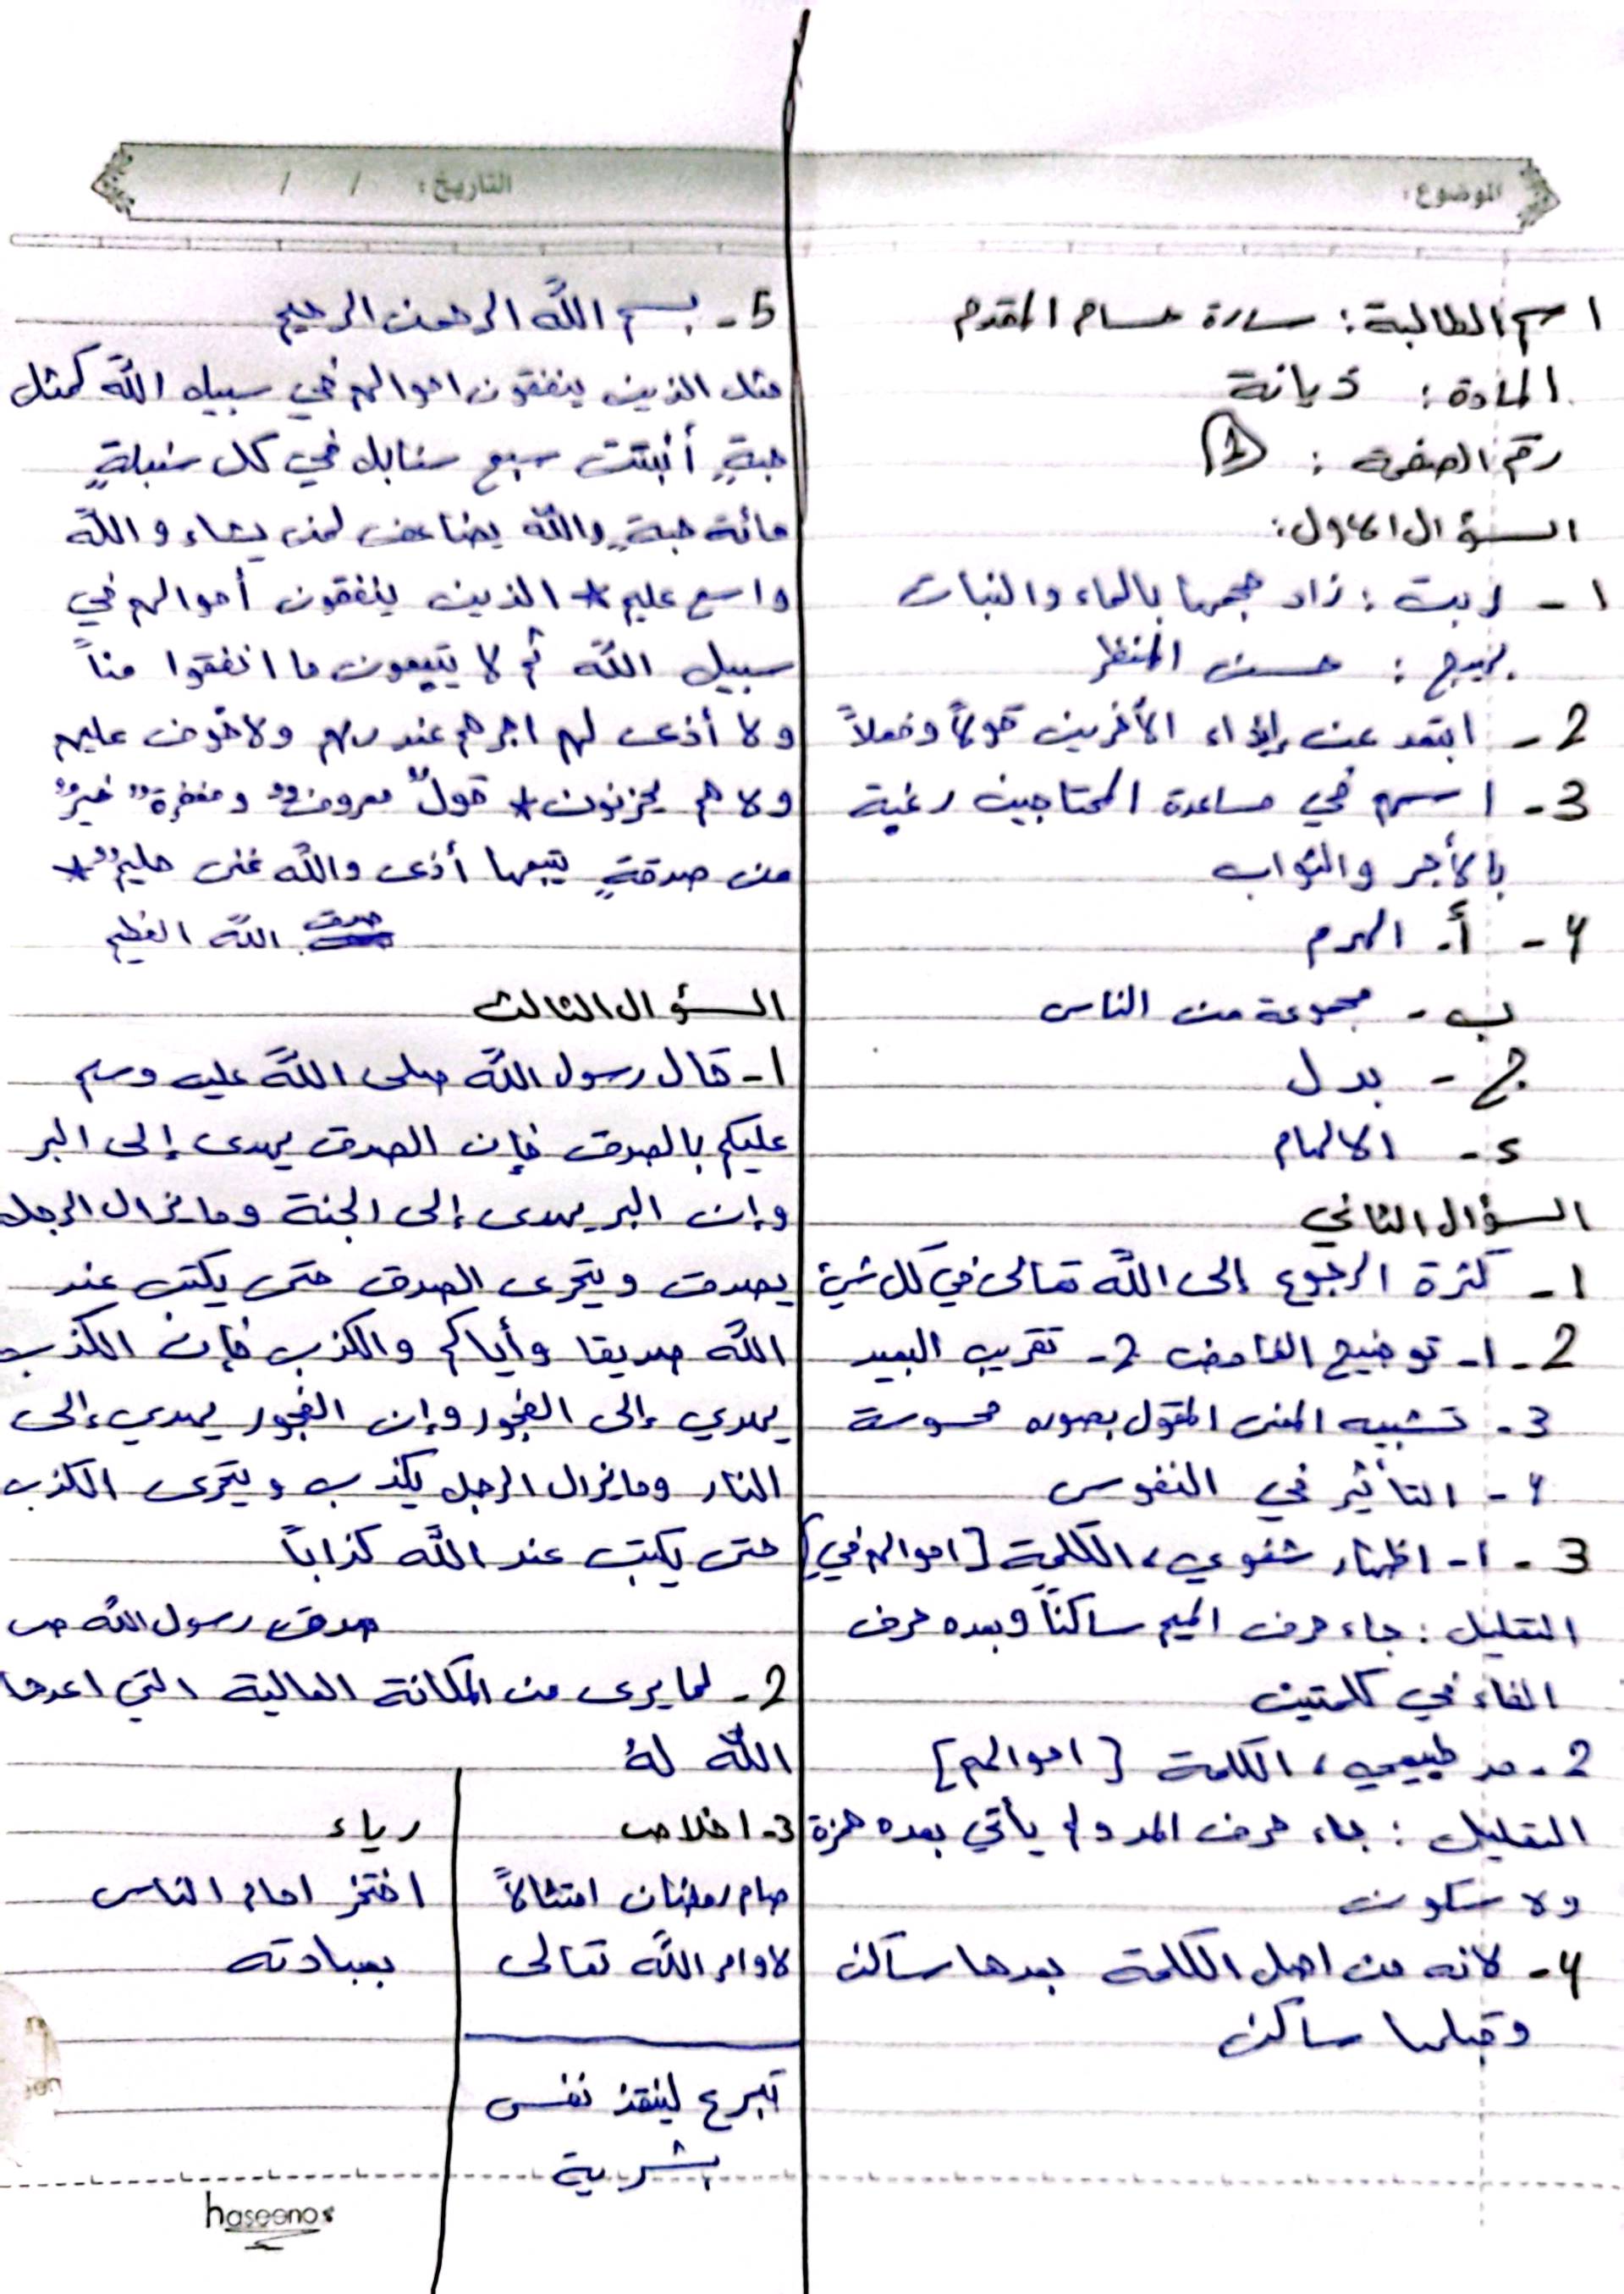 الموضوع:
التاريخ: / /
اسم الطالبة: سارة حسام المقدم
المادة: ديانة
رقم الصفحة: 1
السؤال الاول:
1- ربت: زاد حجمها بالماء والنبات
بهيج: حسن المنظر
2- ابتعد عن إيذاء الأخرين قولاً وفعلاً
3- اسهم في مساعدة المحتاجين رغبة
بالأجر والثواب
4- أ. الهرم
ب- مجموعة من الناس
ج- بدل
د- الالهام
السؤال الثاني
1- كثرة الرجوع إلى الله تعالى في كل شيئ
2- 1- توضيح الغامض 2- تقريب البعيد
3- تشبيه المعنى المقول بصوره محسوسة
4- التأثير في النفوس
3- 1- اظهار شفوي، الكلمة [اموالهم في]
التعليل: جاء حرف الميم ساكناً وبعده حرف
الفاء في كلمتين
2- مد طبيعي، الكلمة [اموالهم]
التعليل: جاء حرف المد ولم يأتي بعده همزة
ولا سكون
4- لانه من اصل الكلمة بعدها ساكن
وقبلها ساكن
5- بسم الله الرحمن الرحيم
مثل الذين ينفقون اموالهم في سبيل الله كمثل
حبةٍ أنبتت سبع سنابل في كل سنبلةٍ
مائة حبةٍ والله يضاعف لمن يشاء والله
واسع عليم * الذين ينفقون أموالهم في
سبيل الله ثم لا يتبعون ما انفقوا مناً
ولا أذى لهم اجرهم عند ربهم ولا خوف عليهم
ولا هم يحزنون * قولٌ معروفٌ ومغفرةٌ خيرٌ
من صدقةٍ يتبعها أذى والله غنى حليمٌ *
صدق الله العظيم
السؤال الثالث
1- قال رسول الله صلى الله عليه وسلم
عليكم بالصدق فإن الصدق يهدى إلى البر
وإن البر يهدى إلى الجنة وما يزال الرجل
يصدق ويتحرى الصدق حتى يكتب عند
الله صديقا وأياكم والكذب فإن الكذب
يهدي إلى الفجور وإن الفجور يهدي إلى
النار وما يزال الرجل يكذب ويتحرى الكذب
حتى يكتب عند الله كذاباً
صدق رسول الله ص
2- لما يرى من المكانة العالية التي اعدها
الله لهُ
3- اخلاص
رياء
صام رمضان امتثالاً
افتخر امام الناس
لاوامر الله تعالى
بعبادته
تبرع لينقذ نفس
بشرية
haseenos